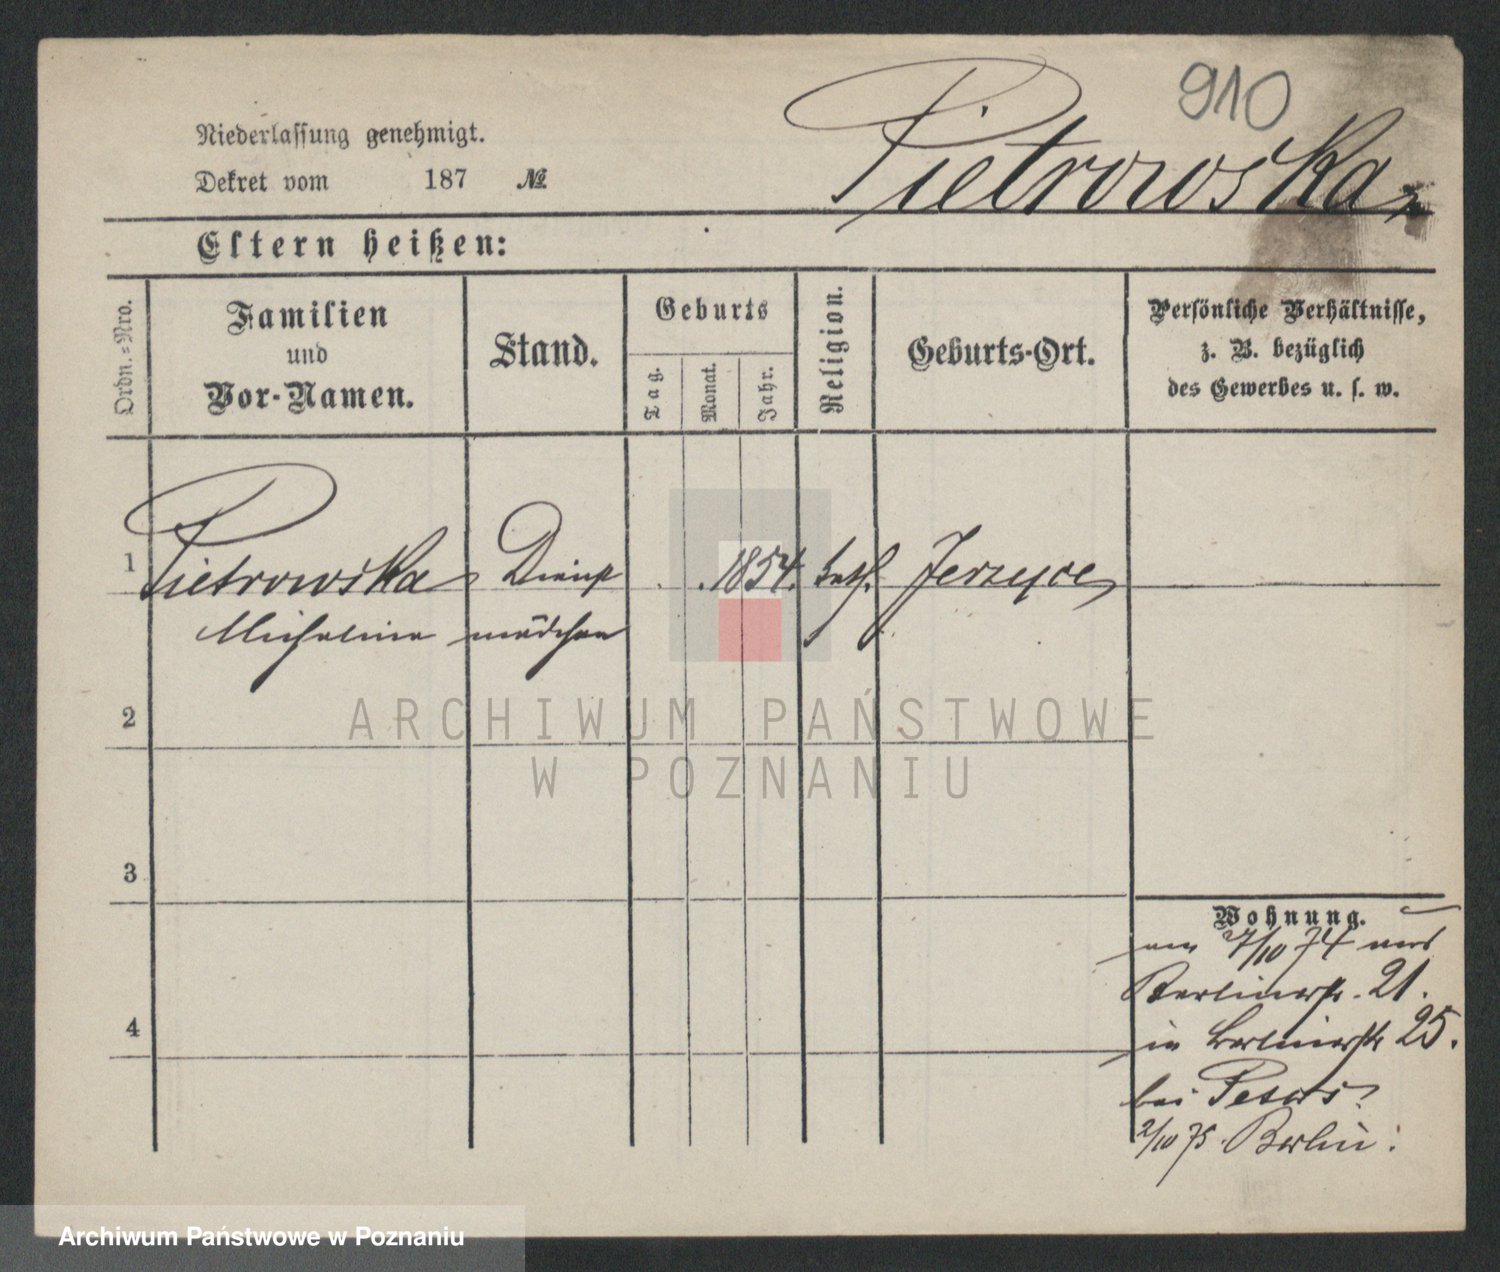 910
Pietrowska
Niederlassung genehmigt.
Dekret vom 187 №
Eltern heißen:
Ordn.-Nro.
Familien
und
Vor-Namen.
Stand.
Geburts
Tag.
Monat.
Jahr.
Religion.
Geburts-Ort.
Persönliche Verhältnisse,
z. B. bezüglich
des Gewerbes u. s. w.
1 Pietrowska Dienst 1854. kath. Jerzyce
Michalina mädchen
2
3
4
Wohnung.
am 7/10 74 aus
Berlinerstr. 21.
in Berlinerstr 25.
bei
2/10 75. Berlin.
ARCHIWUM PAŃSTWOWE
W POZNANIU
Archiwum Państwowe w Poznaniu